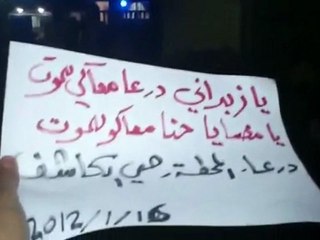 يا زبداني درعا معاكي للموت
يا مضايا حنا معاكو للموت
درعا المحطة حي الكاشف
2012/1/16